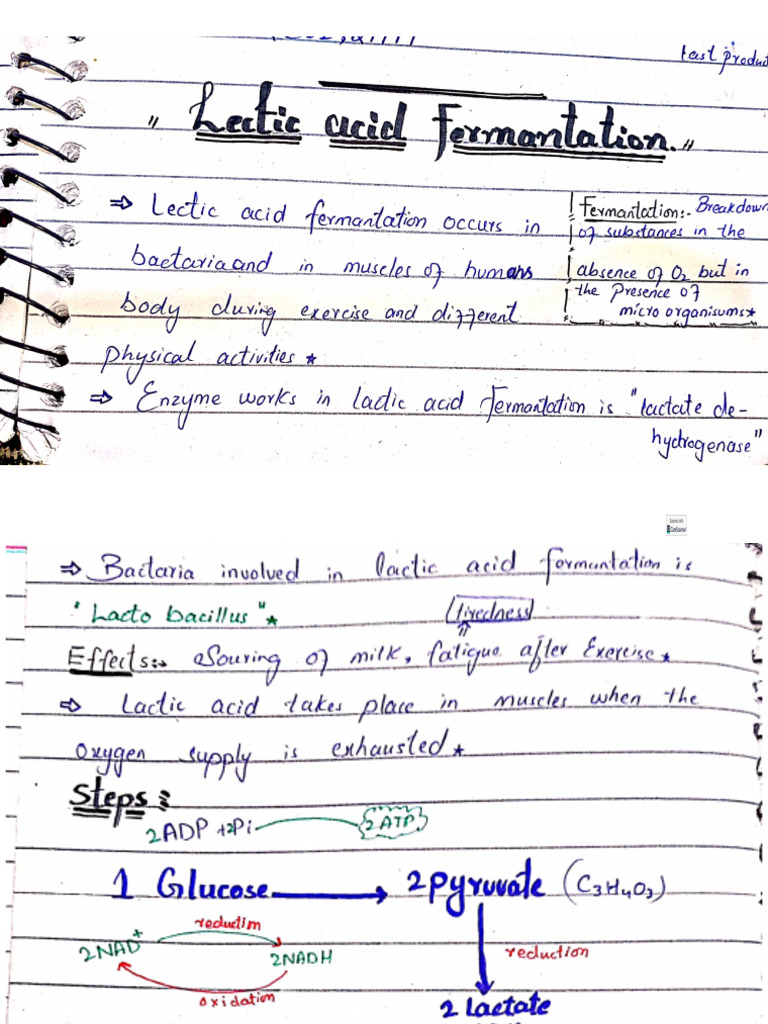 last product
" Lectic acid Fermantation."
⇒ Lectic acid fermantation occurs in
bactaria and in muscles of humans
body during exercise and different
physical activities *
Fermantation:- Breakdown
of substances in the
absence of O₂ but in
the presence of
micro organisums*
⇒ Enzyme works in lactic acid fermantation is "lactate de-
hydrogenase"
⇒ Bactaria involved in lactic acid formantation is
"Lacto bacillus" *
tiredness
Effects:- Souring of milk, fatigue after Exercise *
⇒ Lactic acid takes place in muscles when the
oxygen supply is exhausted *
Steps:
2ADP + 2Pi 2 ATP
1 Glucose → 2 Pyruvate (C₃H₄O₃)
reduction
2NAD⁺ 2NADH
reduction
oxidation
2 Lactate